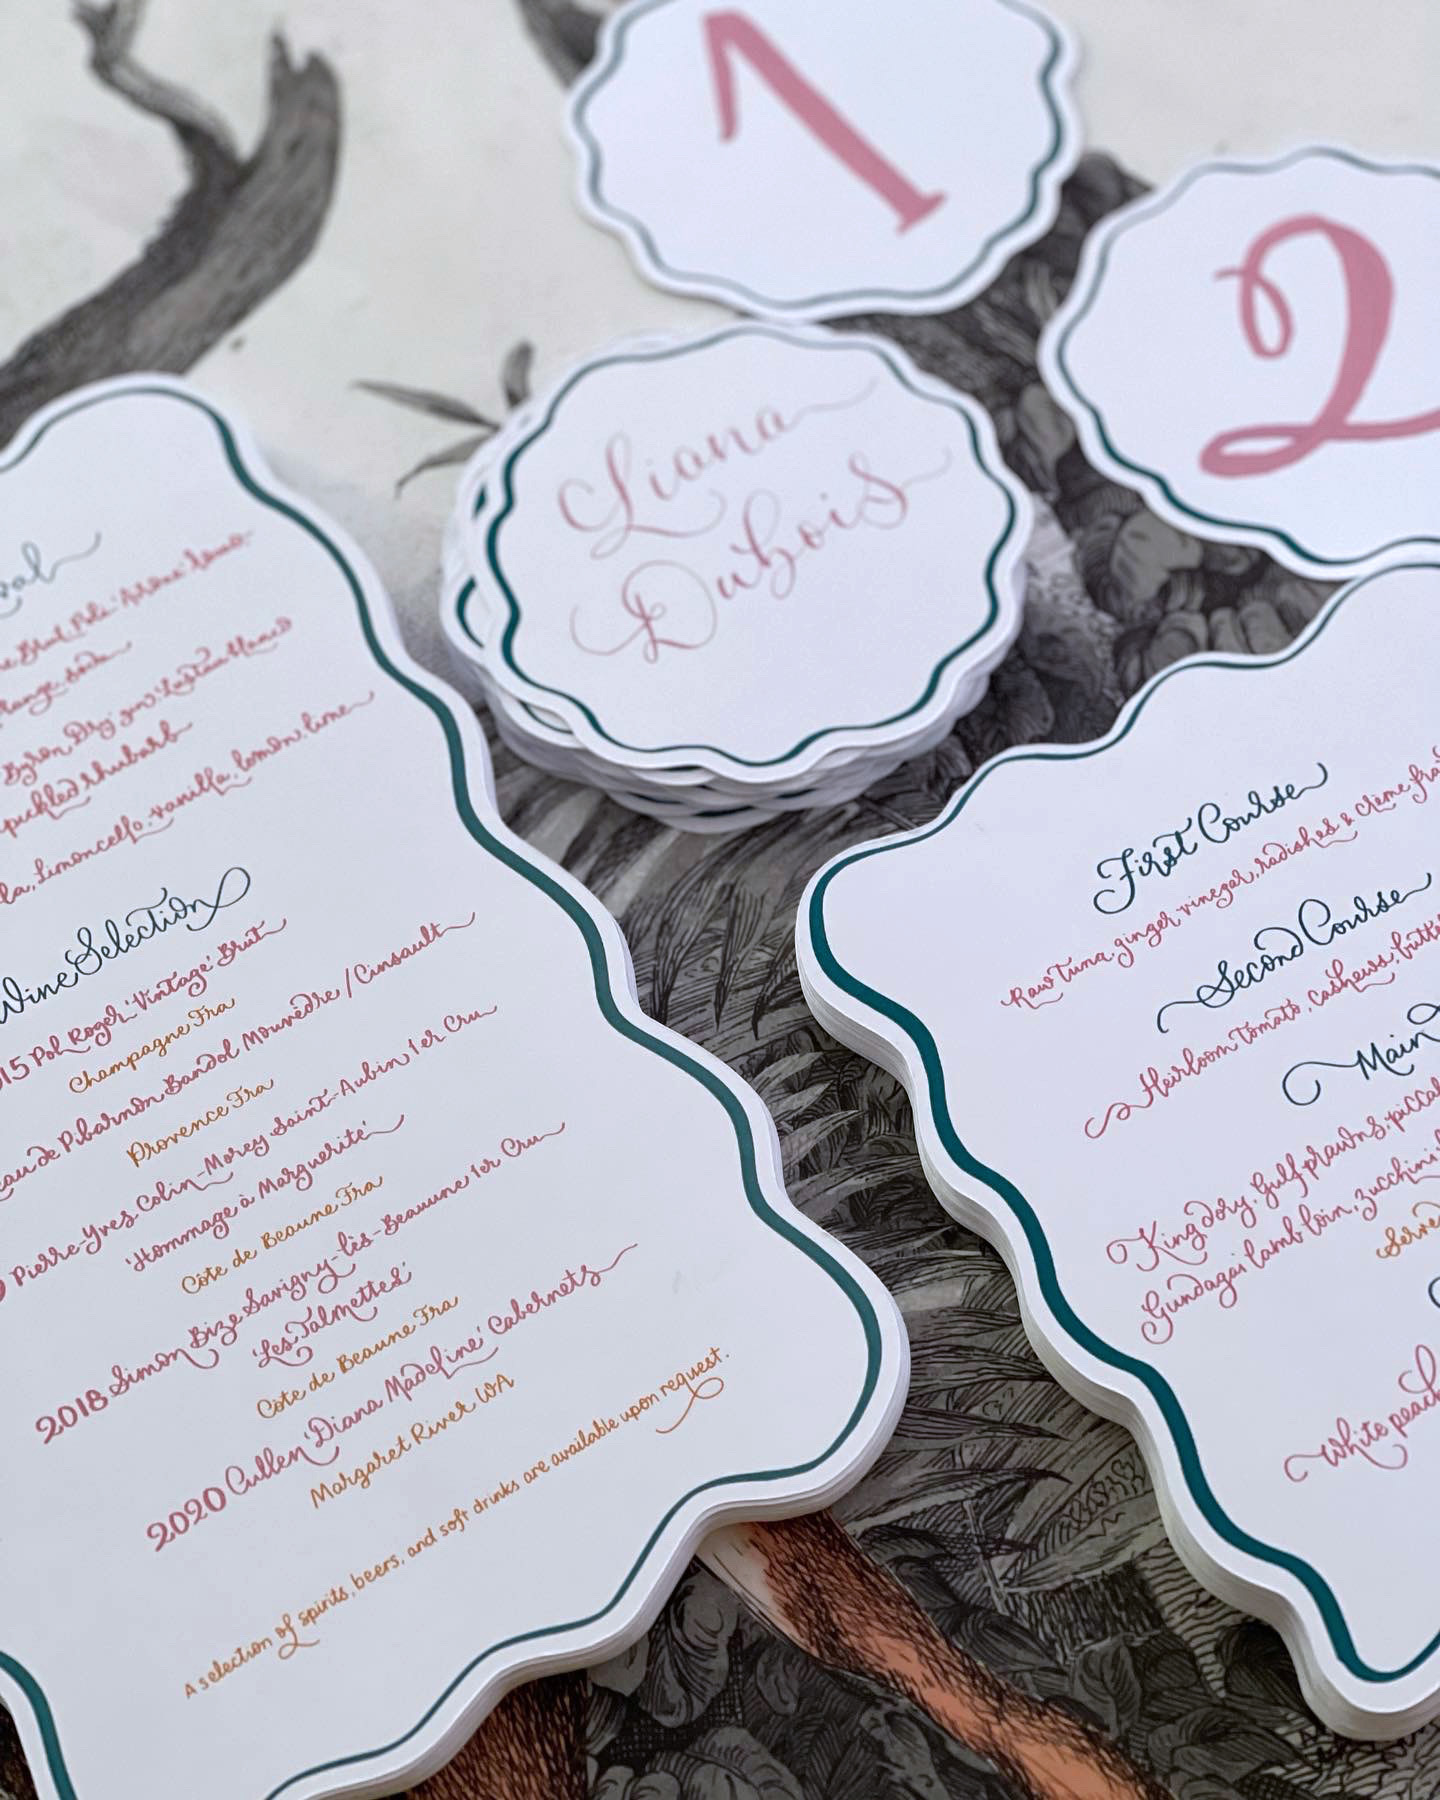 1
2
Liana
Dubois
Brut, Pale
soda
Byron Dry gin,
pickled rhubarb
limoncello, vanilla, lemon, lime
Wine Selection
Pol Roger 'Vintage' Brut
Champagne Fra
de Pibarnon Bandol Mourvèdre / Cinsault
Provence Fra
Pierre-Yves Colin-Morey Saint-Aubin 1er Cru
'Hommage à Marguerite'
Côte de Beaune Fra
2018 Simon Bize Savigny-lès-Beauune 1er Cru
'Les Talmettes'
Côte de Beaune Fra
2020 Cullen 'Diana Madeline' Cabernets
Margaret River WA
A selection of spirits, beers, and soft drinks are available upon request.
First Course
Raw tuna, ginger vinegar, radishes & crème
Second Course
Heirloom tomato, cashews,
Main
King dory, Gulf prawns,
Gundagai lamb loin, zucchini
White peach